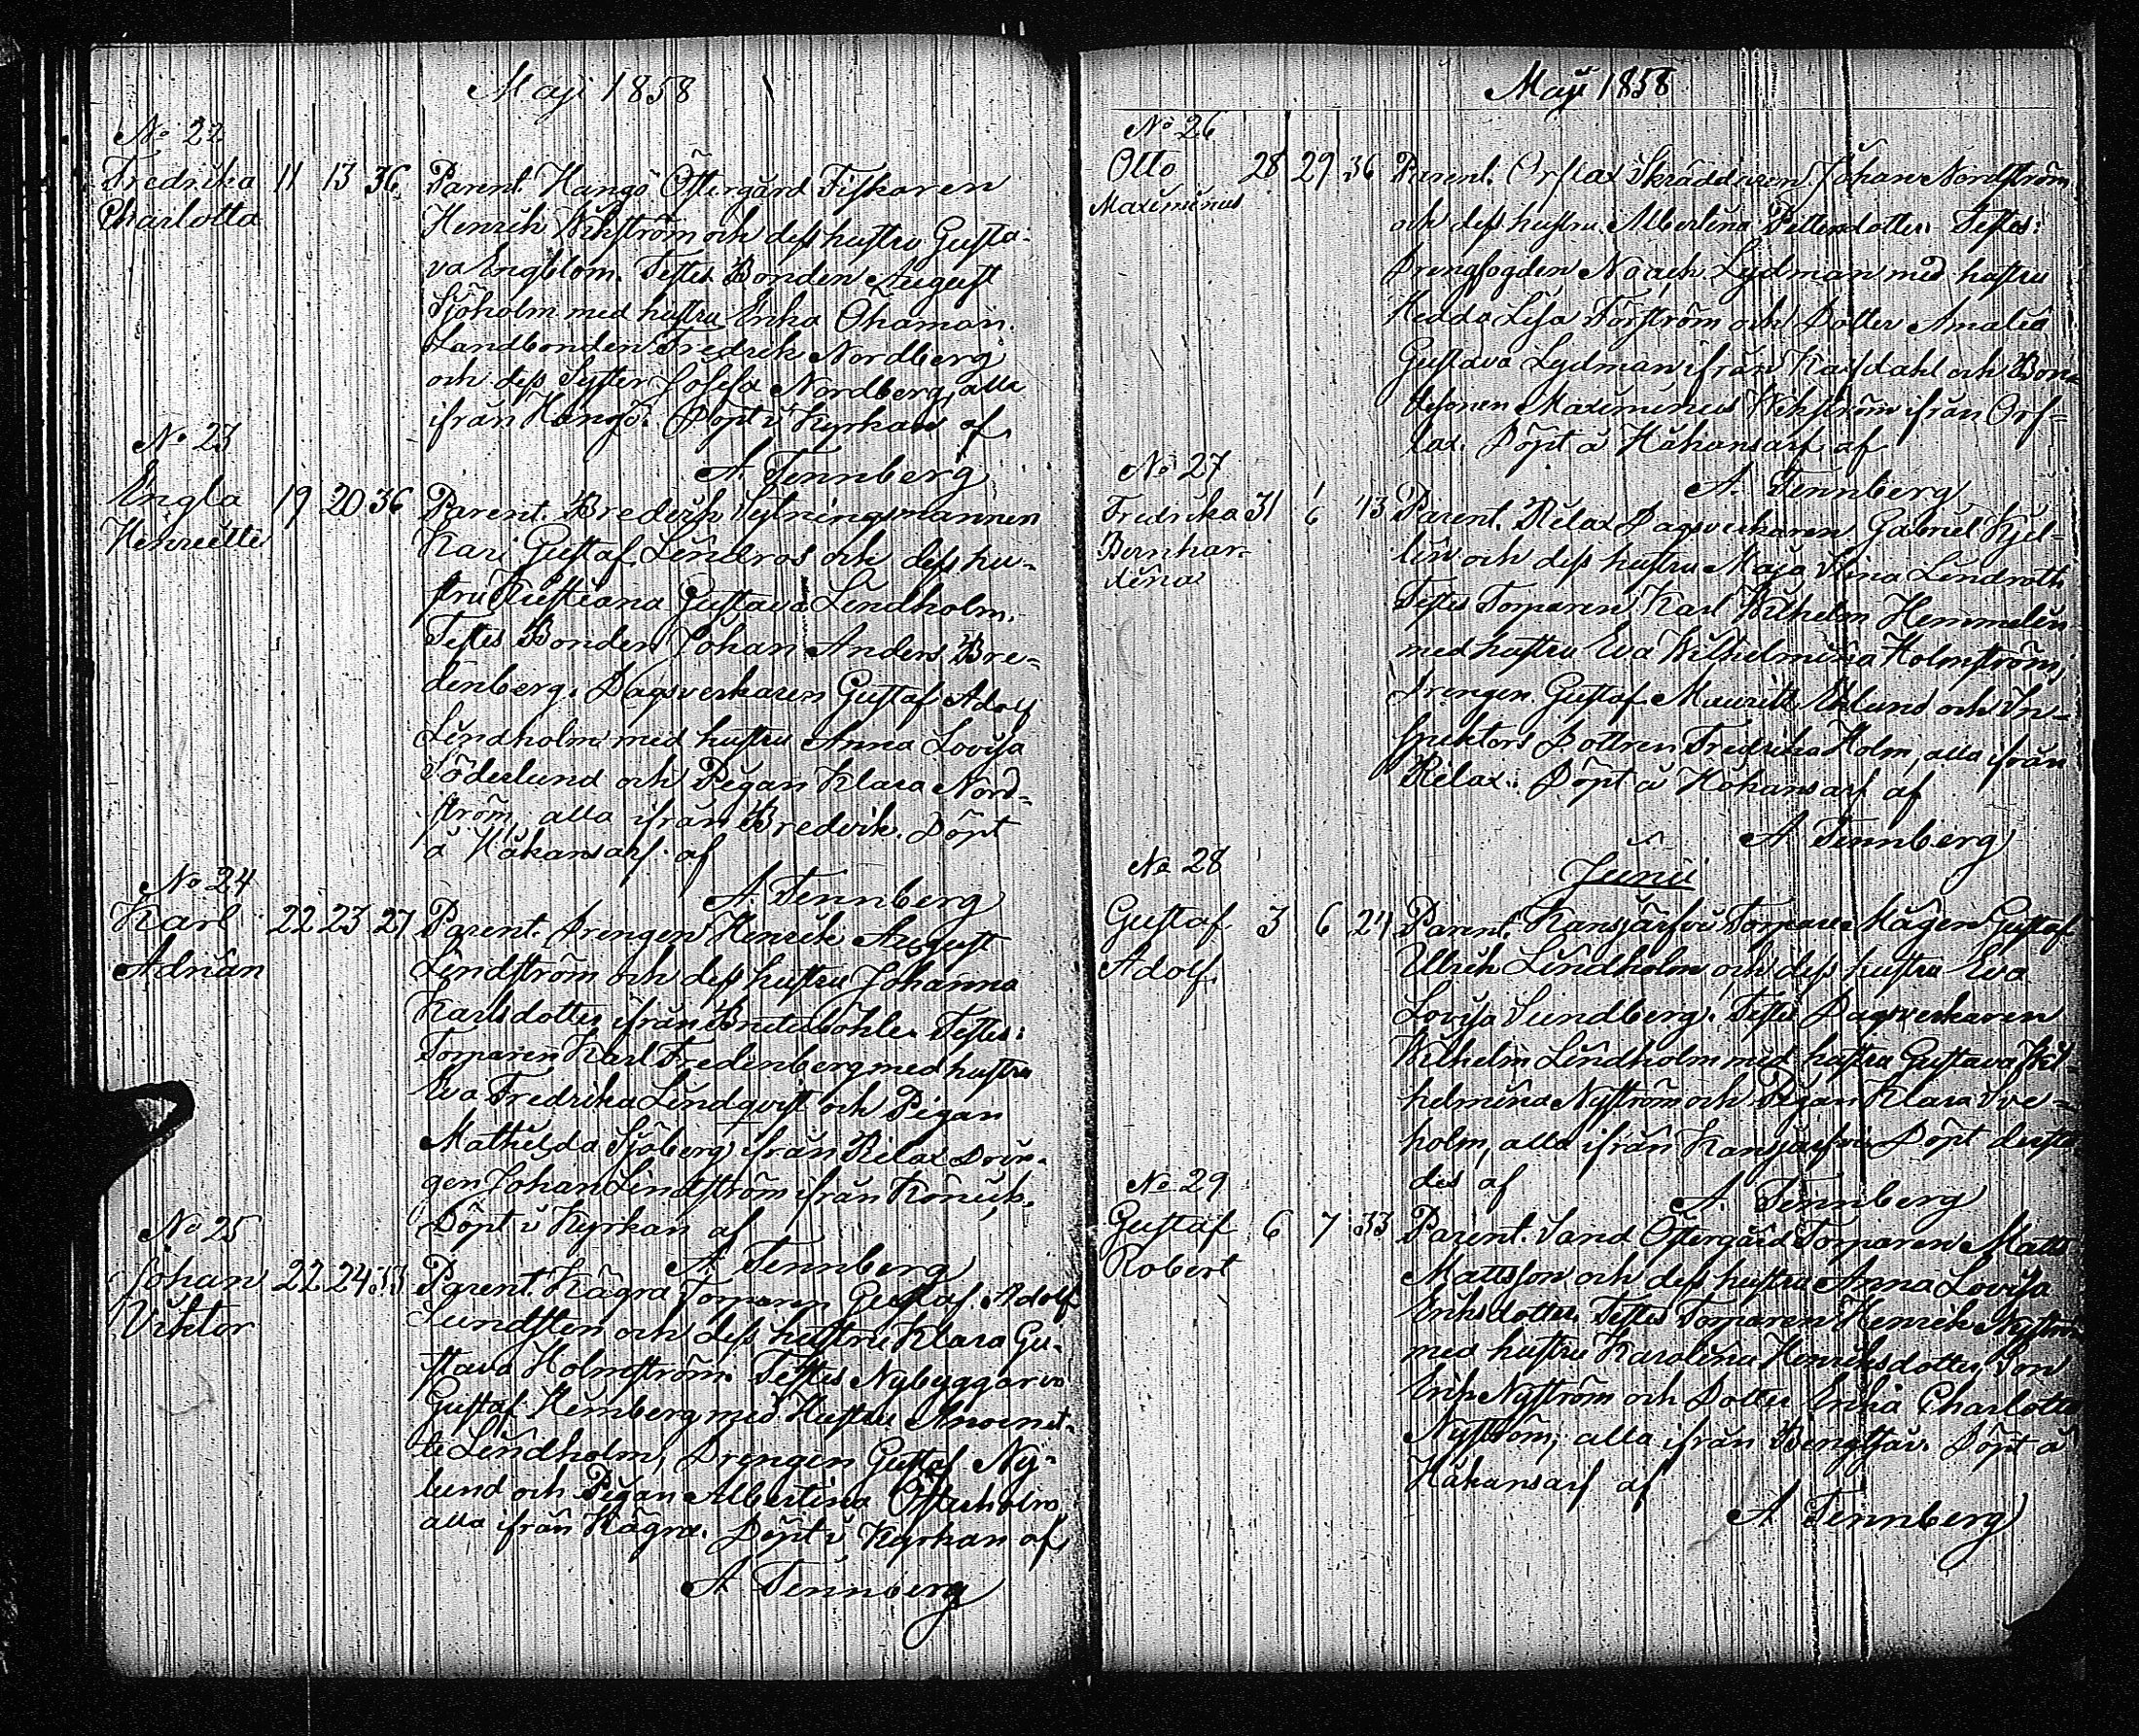 Maji 1858
No 22
Fredrika 11 13 36 Parent. Hangö Östergård Fiskaren
Charlotta Henrik Wikström och dess hustru Gusta-
va Engblom. Testes Bonden August
Sjöholm med hustru Erika Öhaman.
Landbonden Fredrik Nordberg
och dess Syster Josefa Nordberg, alla
ifrån Hangö. Döpt i Kyrkan af
A. Tennberg
No 23
Engla 19 20 36 Parent. Bredvik
Henriette Karl Gustaf Lindros och dess hu-
stru Kristiana Gustava Lindholm.
Testes Bonden Johan Anders Bre-
denberg. Dagsverkaren Gustaf Adolf
Lindholm med hustru Anna Lovisa
Söderlund och Pigan Klara Nord-
ström, alla ifrån Bredvik. Döpt
å Håkansarf af
A. Tennberg
No 24
Karl 22 23 27 Parent. Drengen Henrik August
Adrian Lindström och dess hustru Johanna
Karlsdotter ifrån Testes:
Torparen Karl Fredenberg med hustru
Eva Fredrika Lindqvist och Pigan
Mathilda Sjöberg ifrån Rilax Drän-
gen Johan Lindström ifrån
Döpt i Kyrkan af
A. Tennberg
No 25
Johan 22 24 33 Parent. Kägra Torparen Gustaf Adolf
Viktor Sundsten och dess hustru Klara Gu-
stava Holmström. Testes Nybyggaren
Gustaf Hemberg med Hustru
Lindholm, Drengen Gustaf Ny-
lund och Pigan Albertina Österholm
alla ifrån Kägra. Döpt i Kyrkan af
A Tennberg
Maji 1858
No 26
Otto 28 29 36 Parent. Orslax Skräddaren Johan Nordström
Maximinus och dess hustru Albertina Pettersdotter. Testes:
Drengfogden Noach Lydman med hustru
Hedda Lisa Forström och Dotter Amalia
Gustava Lydman ifrån Kalfdahl och Bon-
desonen Maximinus Wikström ifrån Ors-
lax. Döpt å Håkansarf af
A. Tennberg
No 27
Fredrika 31 6 43 Parent. Rilax Dagsverkaren Gabriel Kjel-
Bernhar- lin och dess hustru Maja Stina Lindroth
dina Testes Torparen Karl Wilhelm Hemmelin
med hustru Eva Wilhelmina Holmström,
Drengen Gustaf Mauritz Eklund och In-
spektors Dottren Fredrika Holm, alla ifrån
Rilax. Döpt å Håkansarf af
A Tennberg
No 28
Junii
Gustaf 3 6 24 Parent. Kansjärfvi Torpare Mågen Gustaf
Adolf. Ulrik Lindholm och dess hustru Eva
Lovisa Sundberg. Testes Dagsverkaren
Wilhelm Lindholm med hustru Gustava Wil-
helmina Nyström och Pigan Klara Sve-
holm, alla ifrån Kansjärfvi Döpt
des af
A. Tennberg
No 29
Gustaf 6 7 33 Parent. Sand Östergård Torparen Matts
Robert Mattsson och dess hustru Anna Lovisa
Eriksdotter. Testes Torparen Henrik Nyström
med hustru Karolina Henriksdotter, Son
Erik Nyström och Dotter Erika Charlotta
Nyström, alla ifrån Bengtsår. Döpt å
Håkansarf af
A Tennberg